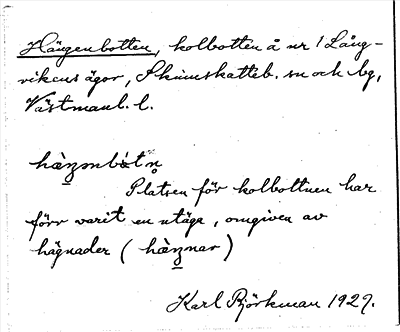 Hängenbotten, kolbotten å nr 1 Lång-
vikens ägor, Skinnskatteb. sn och bg,
Västmanl. l.
Platsen för kolbottnen har
förr varit en utäga, omgiven av
hägnader (
Karl Björkman 1927.